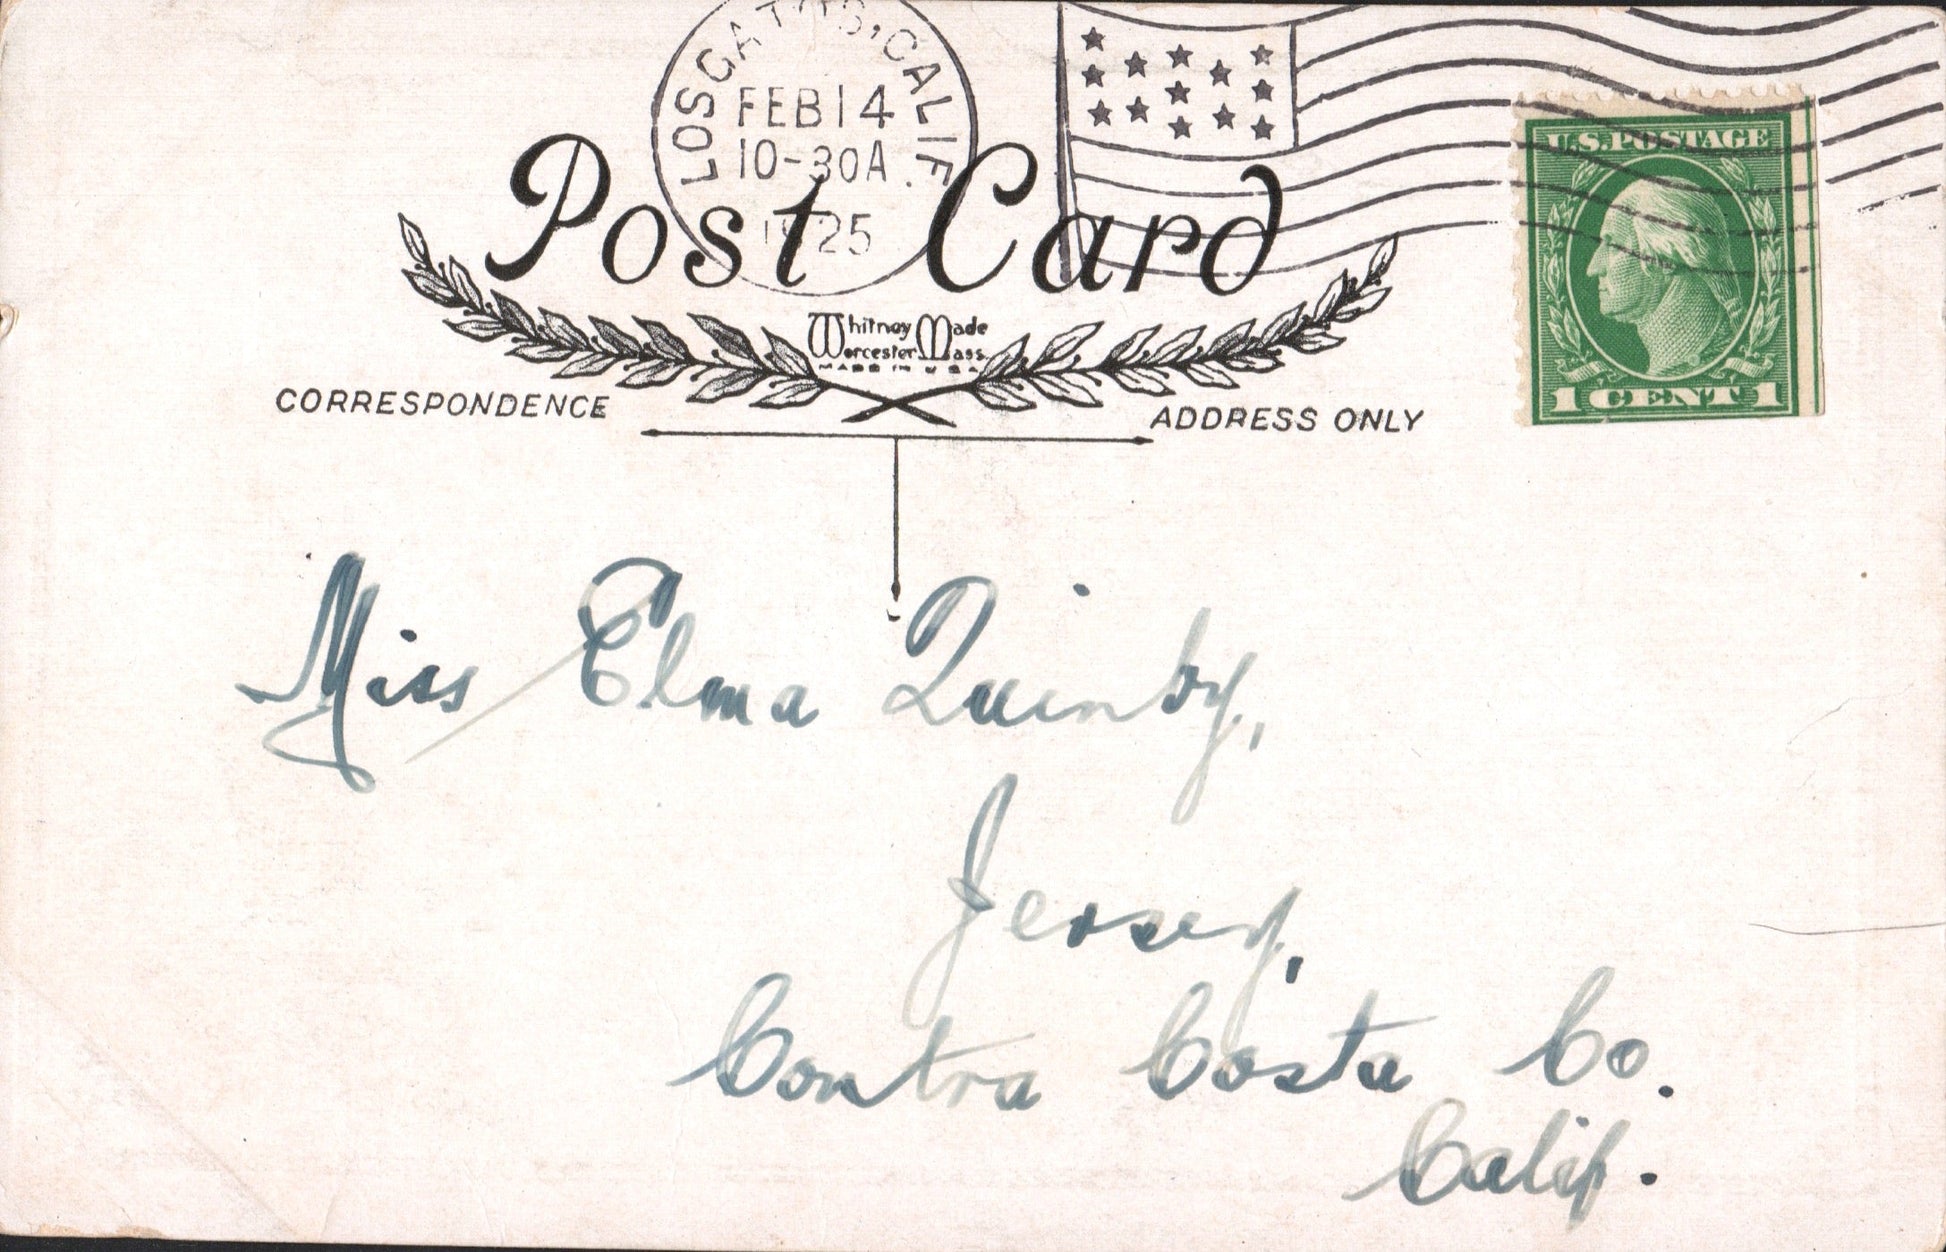 LOS GATOS, CALIF.
FEB 14
10-30A
1925
U.S. POSTAGE
1 CENT 1
Post Card
Whitney Made
Worcester Mass.
MADE IN U S A
CORRESPONDENCE
ADDRESS ONLY
Miss Elma Quinby,
Jersey,
Contra Costa Co.
Calif.